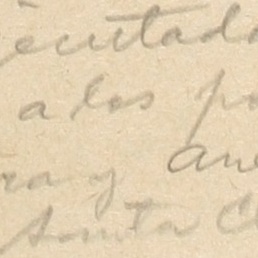 ecutado
a los po
ra y ane
Santa Cl